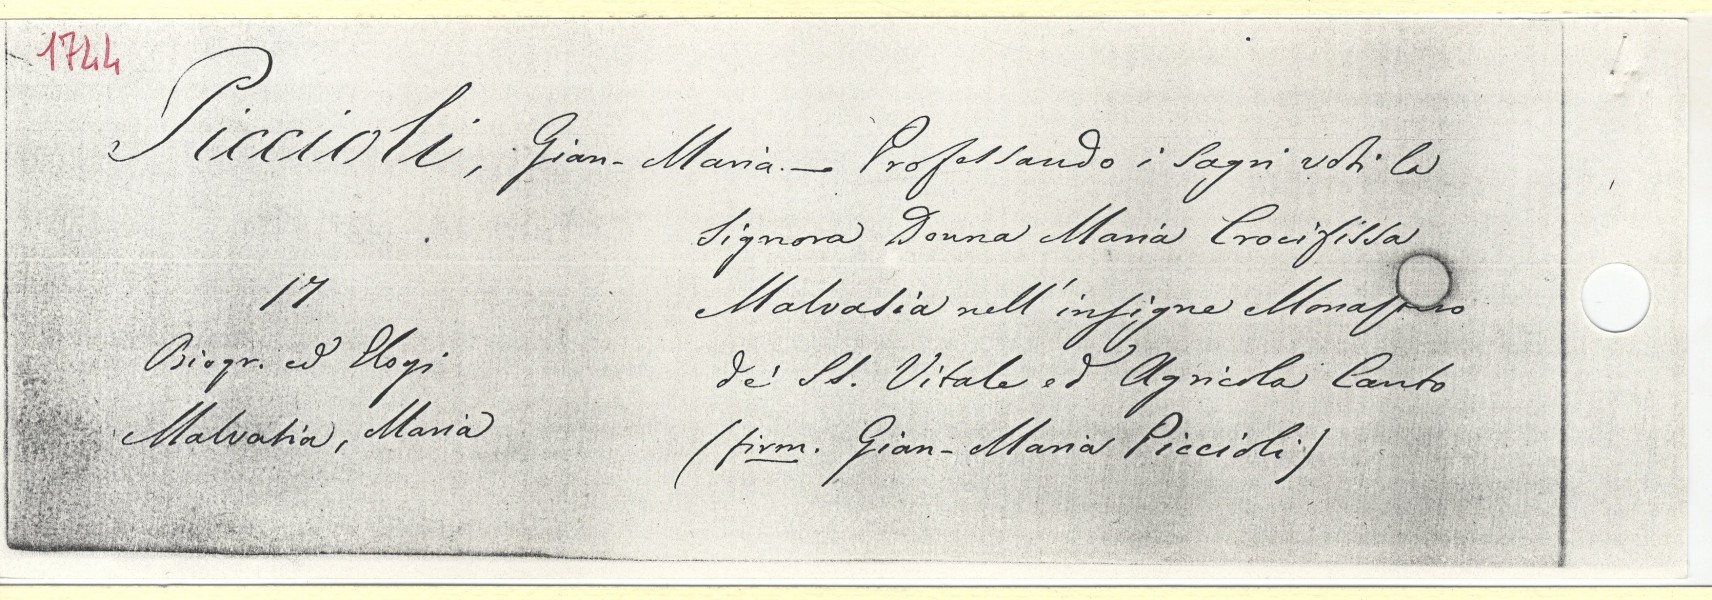 1744
Piccioli, Gian-Maria. — Professando i sagri voti la
Signora Donna Maria Crocifissa
Malvasia nell'insigne Monastero
17
de' SS. Vitale ed Agricola Canto
Biogr. ed Elogi
(firm. Gian-Maria Piccioli)
Malvasia, Maria